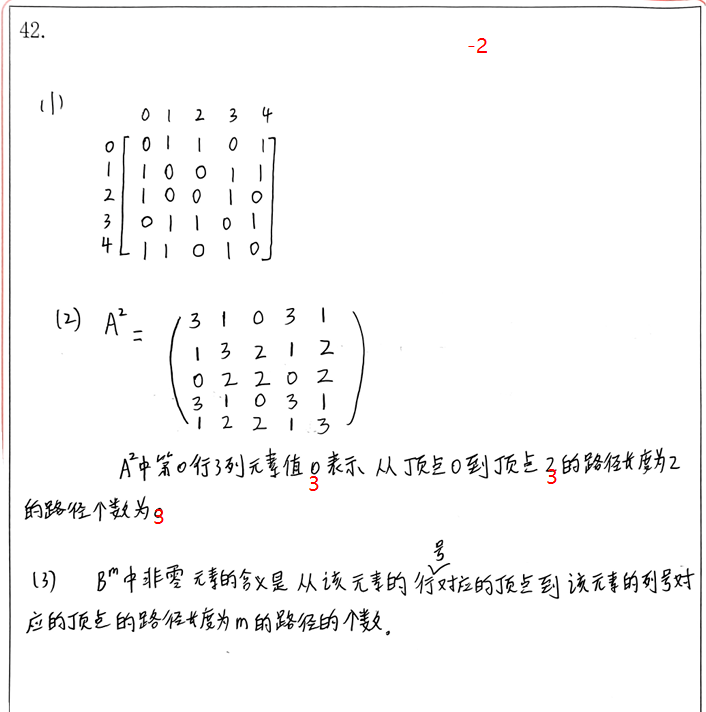 42.
-2
(1)
0 1 2 3 4
0 0 1 1 0 1
1 1 0 0 1 1
2 1 0 0 1 0
3 0 1 1 0 1
4 1 1 0 1 0
(2) A² =
3 1 0 3 1
1 3 2 1 2
0 2 2 0 2
3 1 0 3 1
1 2 2 1 3
A²中第0行3列元素值0表示从顶点0到顶点2的路径长度为2
3 3
的路径个数为0
3
号
(3) Bᵐ中非零元素的含义是从该元素的行对应的顶点到该元素的列号对
应的顶点的路径长度为m的路径的个数。